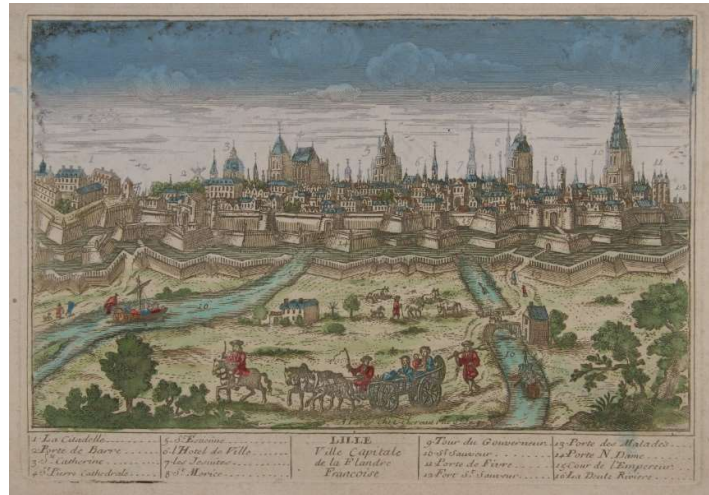 1 La Citadelle
2 Porte de Barre
3 Ste Catherine
4 St Pierre Cathedrale
5 St Etienne
6 l'Hotel de Ville
7 les Jesuites
8 St Morice
LILLE
Ville Capitale
de la Flandre
Françoise
9 Tour du Gouverneur
10 St Sauveur
11 Porte de Fivre
12 Port St Sauveur
13 Porte des Malades
14 Porte N. Dame
15 Tour de l'Empereur
16 La Deule Riviere